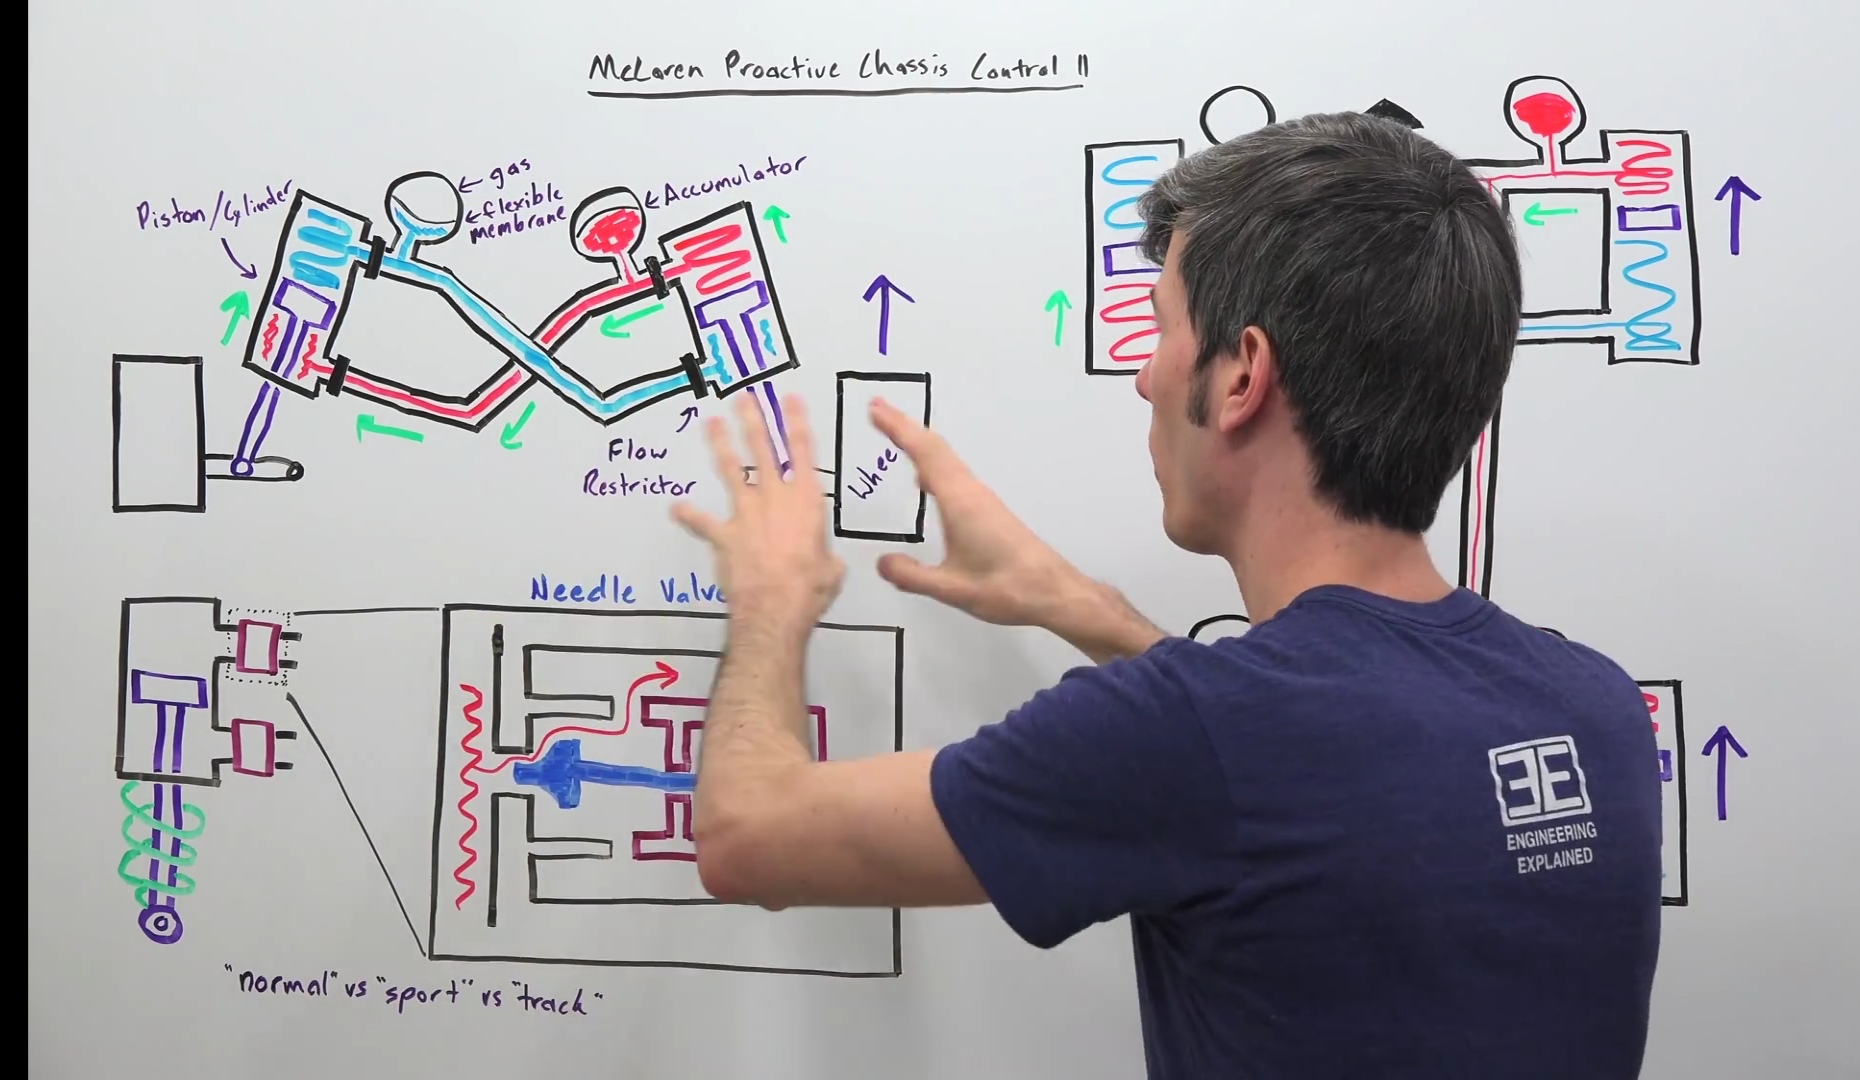 McLaren Proactive Chassis Control II
Piston/Cylinder
gas
flexible
membrane
Accumulator
Flow
Restrictor
Wheel
Needle Valve
"normal" vs "sport" vs "track"
ENGINEERING
EXPLAINED